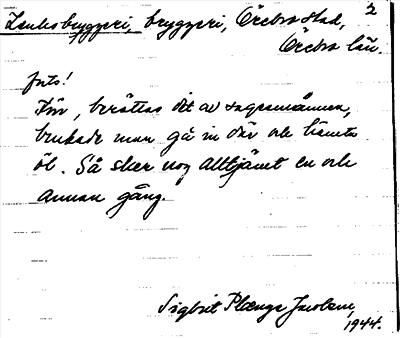 2
Lanksbryggeri, bryggeri, Örebro stad,
Örebro län.
forts!
Förr, berättas det av sagesmännen,
brukade man gå in där och hämta
öl. Så sker nog alltjämt en och
annan gång.
Sigbrit Plænge Jacobson,
1944.